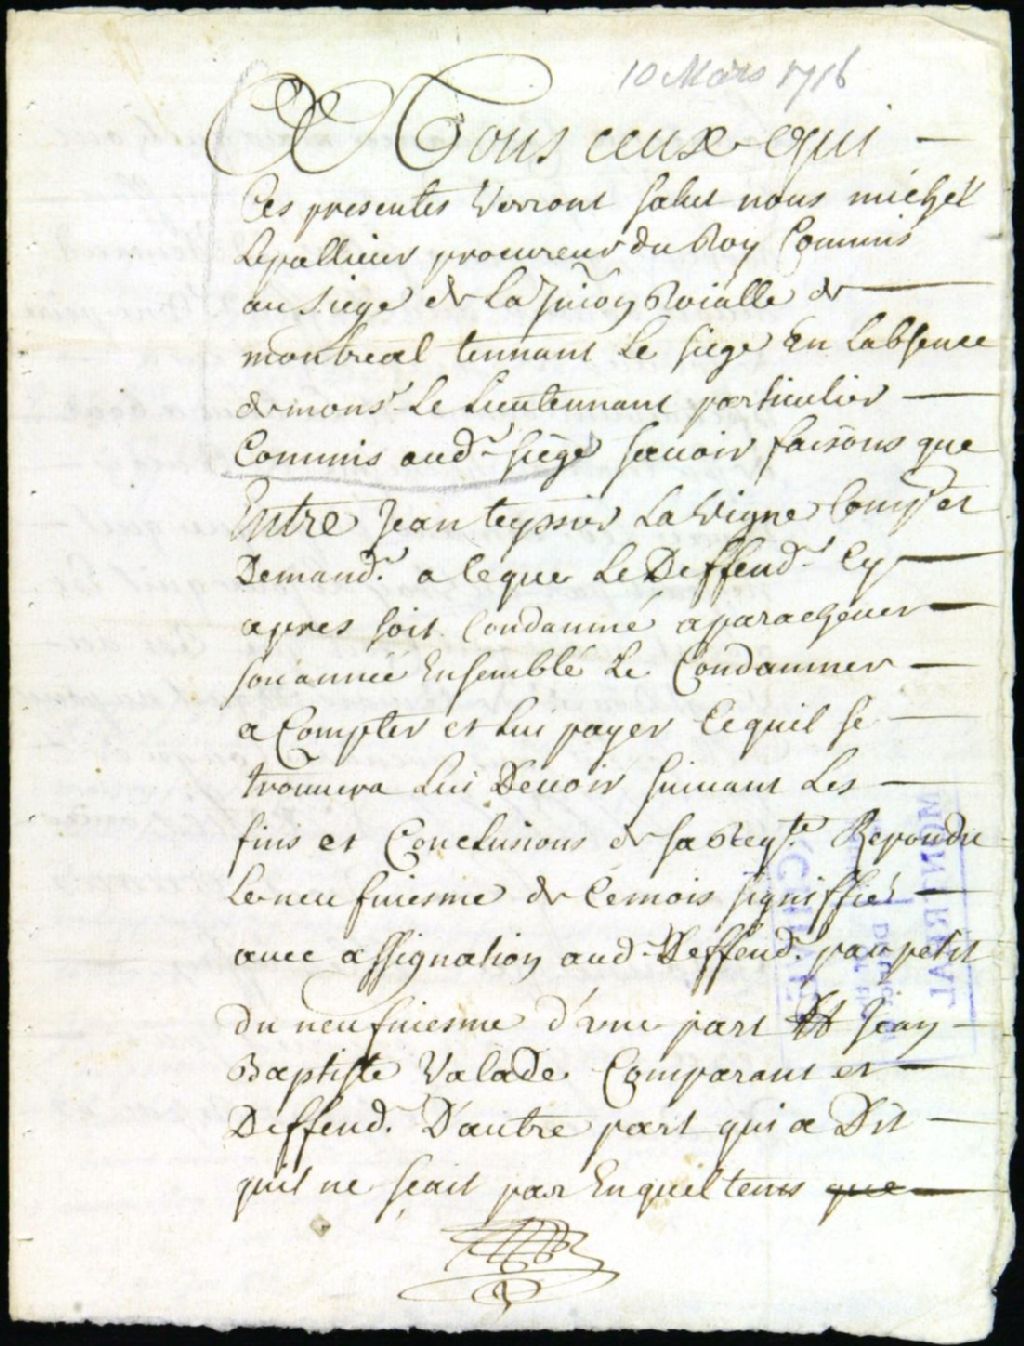 10 Mars 1716
A Tous ceux qui
Ces presentes Verront salut nous michel
Lepallieur procureur du Roy Commis
au siege de La Juri.on Roialle de
montreal tennant le siege En Labsence
de mons.r Le Lieutennant particulier
Commis aud.t siege scavoir faisons que
Entre Jean teyssier La Vigne Comp.t et
Demand.r a Ceque Le Deffend.r Cy
apres soit Condamné aparachever
son année Ensemble Le Condamner
a Compter et Lui payer Cequil se
trouuera Lui Devoir suivant Les
fins et Conclusions de sa Req.te Repondue
Le neufuiesme de Cemois signiffié
avec assignation aud. Deffend.r par petit
du neufuiesme d'une part Et Jean
Baptiste Valade Comparant et
Deffend.r D'autre part qui a Dit
quil ne scait pas En quel tems que
MONTREAL